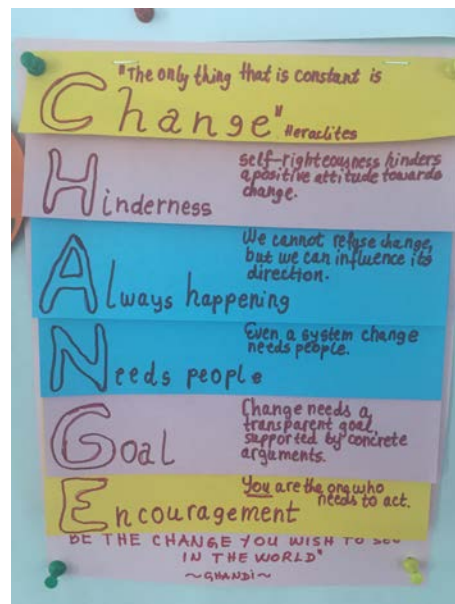 "The only thing that is constant is
Change" Heraclites
self-righteousness hinders
a positive attitude towards
change.
Hinderness
We cannot refuse change,
but we can influence its
direction.
Always happening
Even a system change
needs people.
Needs people
Change needs a
transparent goal,
supported by concrete
arguments.
Goal
You are the one who
needs to act.
Encouragement
BE THE CHANGE YOU WISH TO SEE
IN THE WORLD"
~GHANDI~